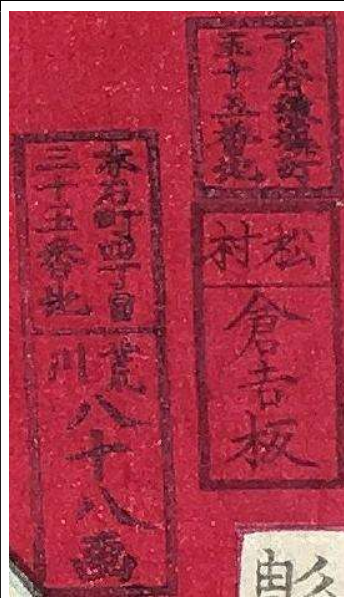 下谷練塀町
五十五番地
松村
倉吉板
本石町四丁目
三十五番地
荒川
八十八画